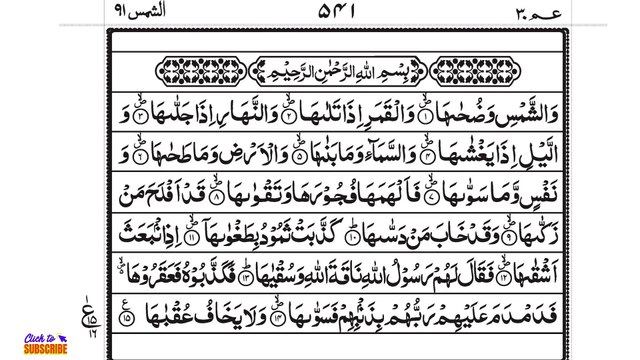 عم ۳۰
۵۴۱
الشمس ۹۱
بِسْمِ اللهِ الرَّحْمٰنِ الرَّحِيْمِ
وَالشَّمْسِ وَضُحٰىهَا ۙ﴿۱﴾ وَالْقَمَرِ اِذَا تَلٰىهَا ۙ﴿۲﴾ وَالنَّهَارِ اِذَا جَلّٰىهَا ۙ﴿۳﴾ وَ
الَّيْلِ اِذَا يَغْشٰىهَا ۙ﴿۴﴾ وَالسَّمَآءِ وَمَا بَنٰىهَا ۙ﴿۵﴾ وَالْاَرْضِ وَمَا طَحٰىهَا ۙ﴿۶﴾ وَ
نَفْسٍ وَّمَا سَوّٰىهَا ۙ﴿۷﴾ فَاَلْهَمَهَا فُجُوْرَهَا وَتَقْوٰىهَا ۙ﴿۸﴾ قَدْ اَفْلَحَ مَنْ
زَكّٰىهَا ۙ﴿۹﴾ وَقَدْ خَابَ مَنْ دَسّٰىهَا ؕ﴿۱۰﴾ كَذَّبَتْ ثَمُوْدُ بِطَغْوٰىهَاۤ ۙ﴿۱۱﴾ اِذِ انْۢبَعَثَ
اَشْقٰىهَا ۙ﴿۱۲﴾ فَقَالَ لَهُمْ رَسُوْلُ اللهِ نَاقَةَ اللهِ وَسُقْيٰهَا ؕ﴿۱۳﴾ فَكَذَّبُوْهُ فَعَقَرُوْهَا ۙ
فَدَمْدَمَ عَلَيْهِمْ رَبُّهُمْ بِذَنْۢبِهِمْ فَسَوّٰىهَا ۙ﴿۱۴﴾ وَلَا يَخَافُ عُقْبٰهَا ﴿۱۵﴾
ع
۱
۱۵
۱۶
Click to
SUBSCRIBE